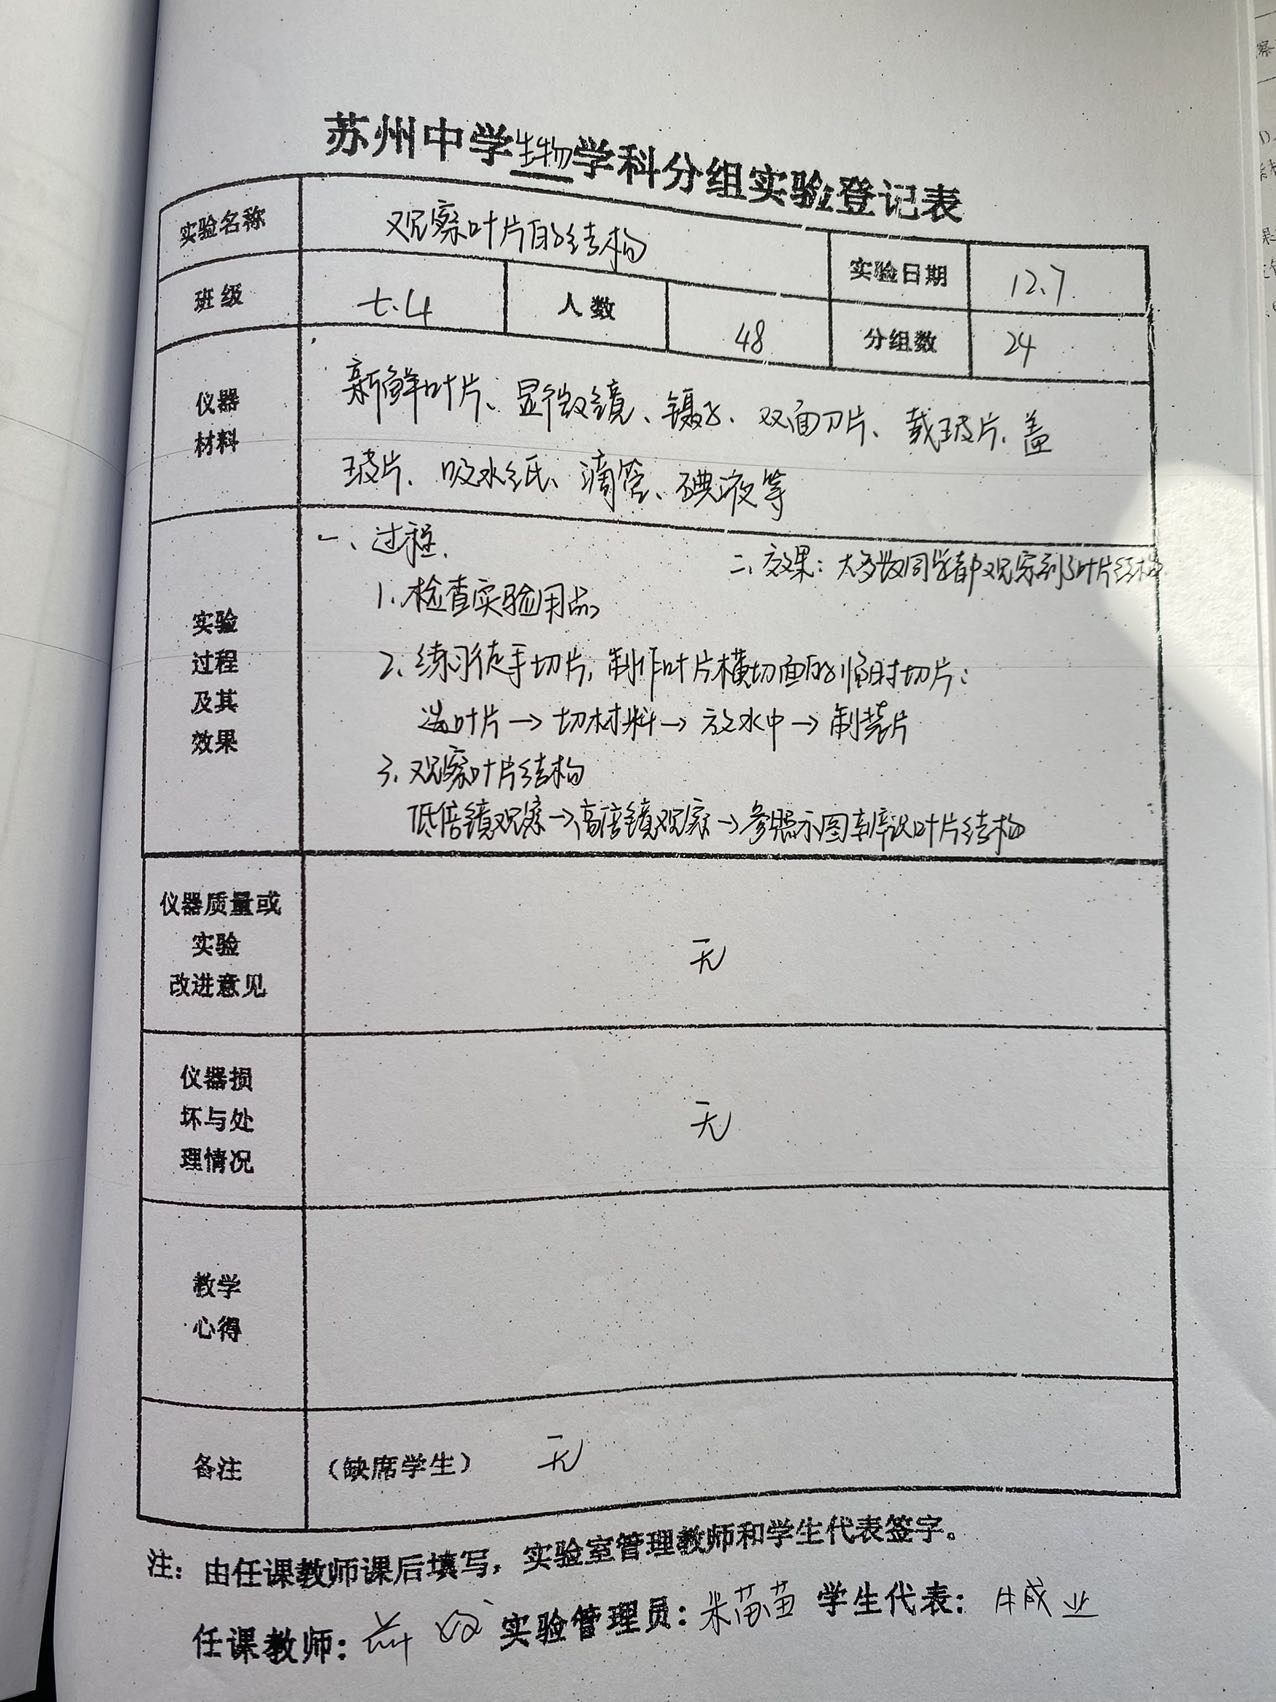 苏州中学生物学科分组实验登记表
实验名称 观察叶片的结构 实验日期 12.7
班级 七.4 人数 48 分组数 24
仪器
材料
新鲜叶片、显微镜、镊子、双面刀片、载玻片、盖
玻片、吸水纸、滴管、碘液等
实验
过程
及其
效果
一、过程.
二、效果：大多数同学都观察到了叶片结构
1.检查实验用品
2.练习徒手切片,制作叶片横切面的临时切片：
选叶片→切材料→放水中→制装片
3.观察叶片结构
低倍镜观察→高倍镜观察→参照示图辨识叶片结构
仪器质量或
实验
改进意见
无
仪器损
坏与处
理情况
无
教学
心得
备注 （缺席学生） 无
注：由任课教师课后填写，实验室管理教师和学生代表签字。
任课教师： 实验管理员：朱苗苗 学生代表：